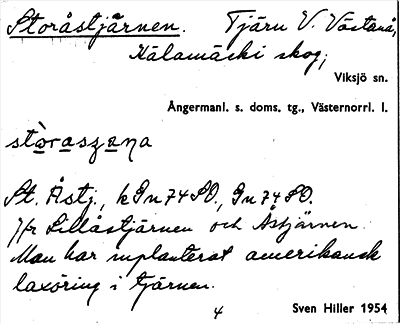 Storåstjärnen. Tjärn V. Västanå,
Kälamäski skog;
Viksjö sn.
Ångermanl. s. doms. tg., Västernorrl. l.
stòraszęna
St. Åstj., kGn74SO., Gn74SO.
Jfr Lillåstjärnen och Åstjärnen.
Man har inplanterat amerikansk
laxöring i tjärnen.
4
Sven Hiller 1954